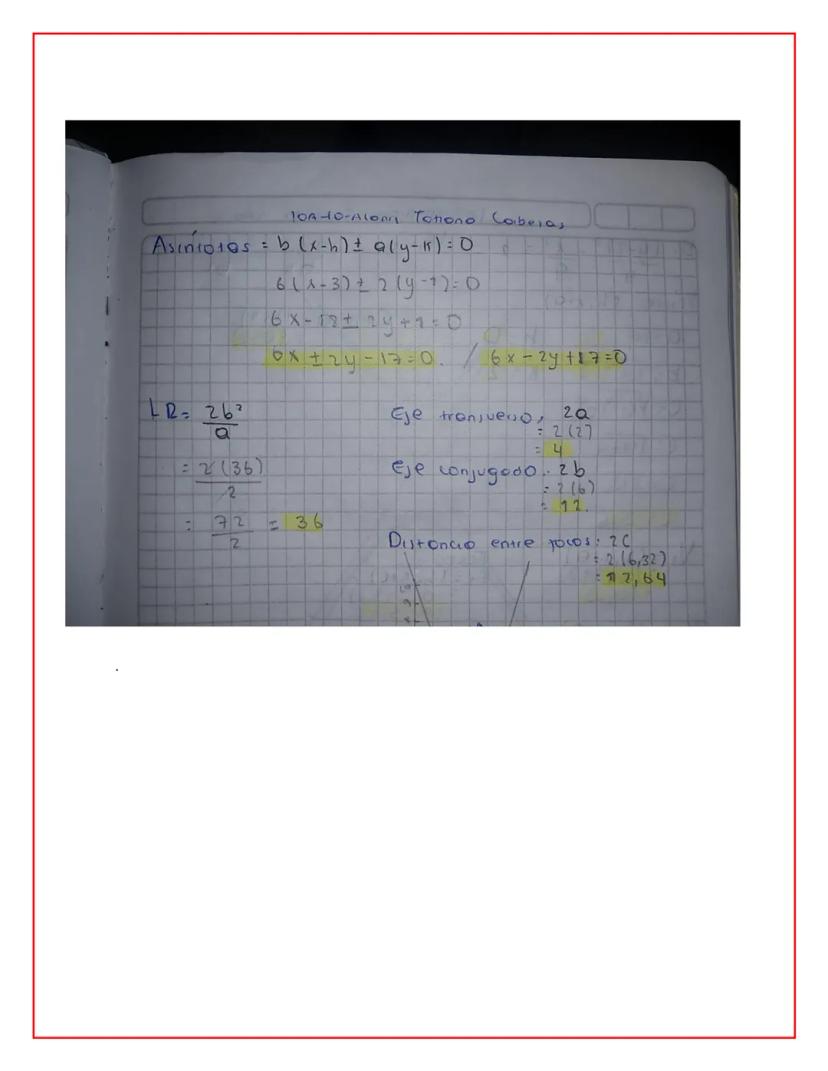 Asíntotas = b(x-h) ± a(y-k) = 0
6(x-3) ± 2(y-1) = 0
6x-18 ± 2y+1 = 0
6x ± 2y - 17 = 0. / 6x - 2y + 17 = 0
LR = 2b²/a
= 2(36)/2
= 72/2 = 36
Eje transverso, 2a
= 2(2)
= 4
Eje conjugado. 2b
= 2(6)
= 12.
Distancia entre focos: 2c
= 2(6,32)
= 12,64
10
9